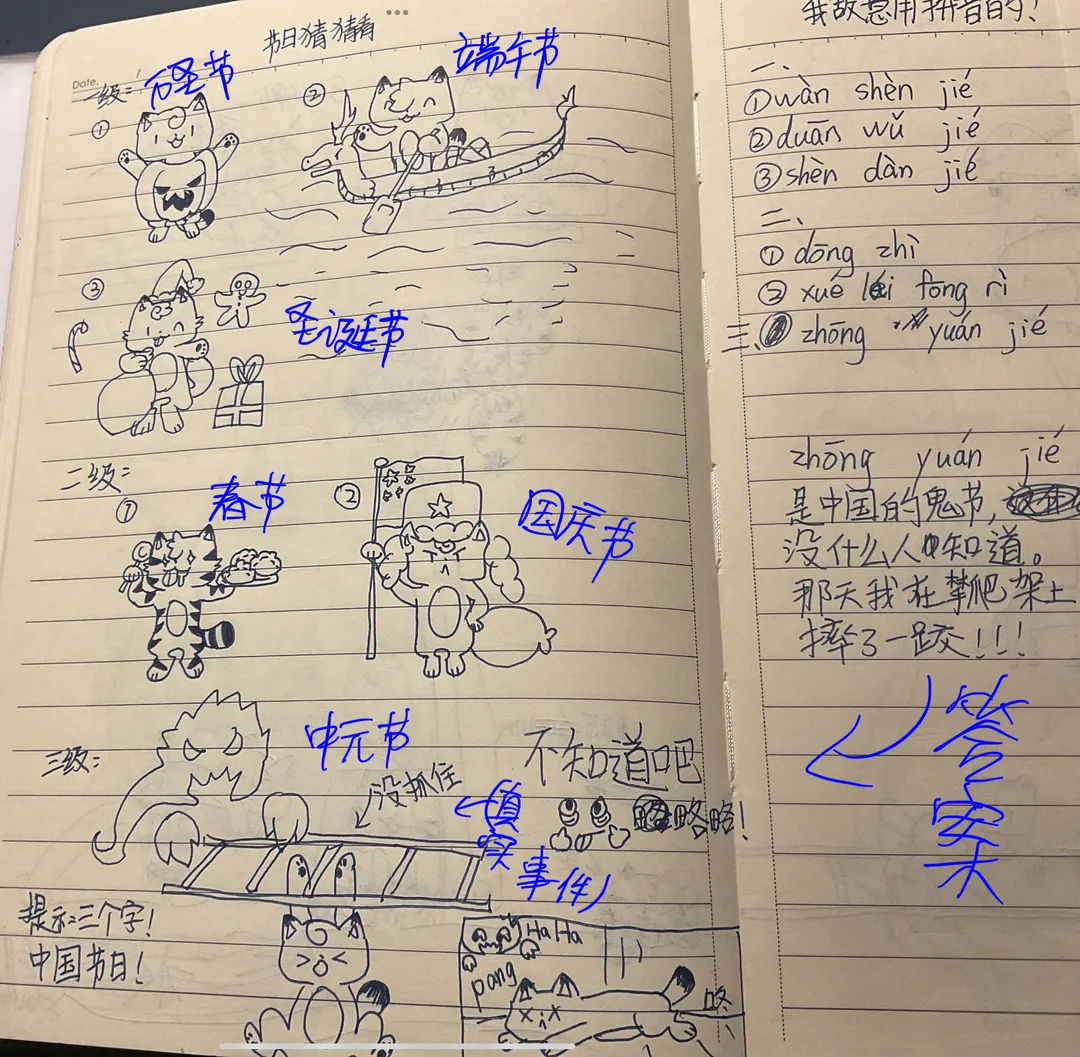 节日猜猜看
Date.
一级:
万圣节
①
②
端午节
③
圣诞节
二级:
①
春节
②
国庆节
三级:
中元节
没抓住
不知道吧
略略!
真实事件)
提示:三个字!
中国节日!
HaHa
pang
咚
我故意用拼音的!
一、
①wàn shèn jié
②duān wǔ jié
③shèn dàn jié
二、
①dōng zhì
②xué léi fong rì
三、zhōng yuán jié
zhōng yuán jié
是中国的鬼节,
没什么人知道。
那天我在攀爬架上
摔了一跤!!!
答案